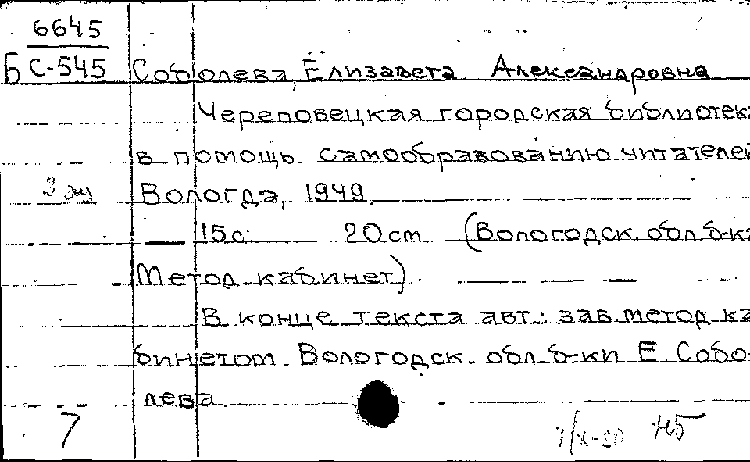 6645
Б С-545 Соболева, Елизавета Александровна
Череповецкая городская библиотека
в помощь самообразованию читателей
3 эк Вологда, 1949.
15 с 20 cm (Вологодск. обл. б-ка
Метод. кабинет)
В конце текста авт.: зав. метод. ка
бинетом Вологодск. обл. б-ки Е. Собо
лева
7